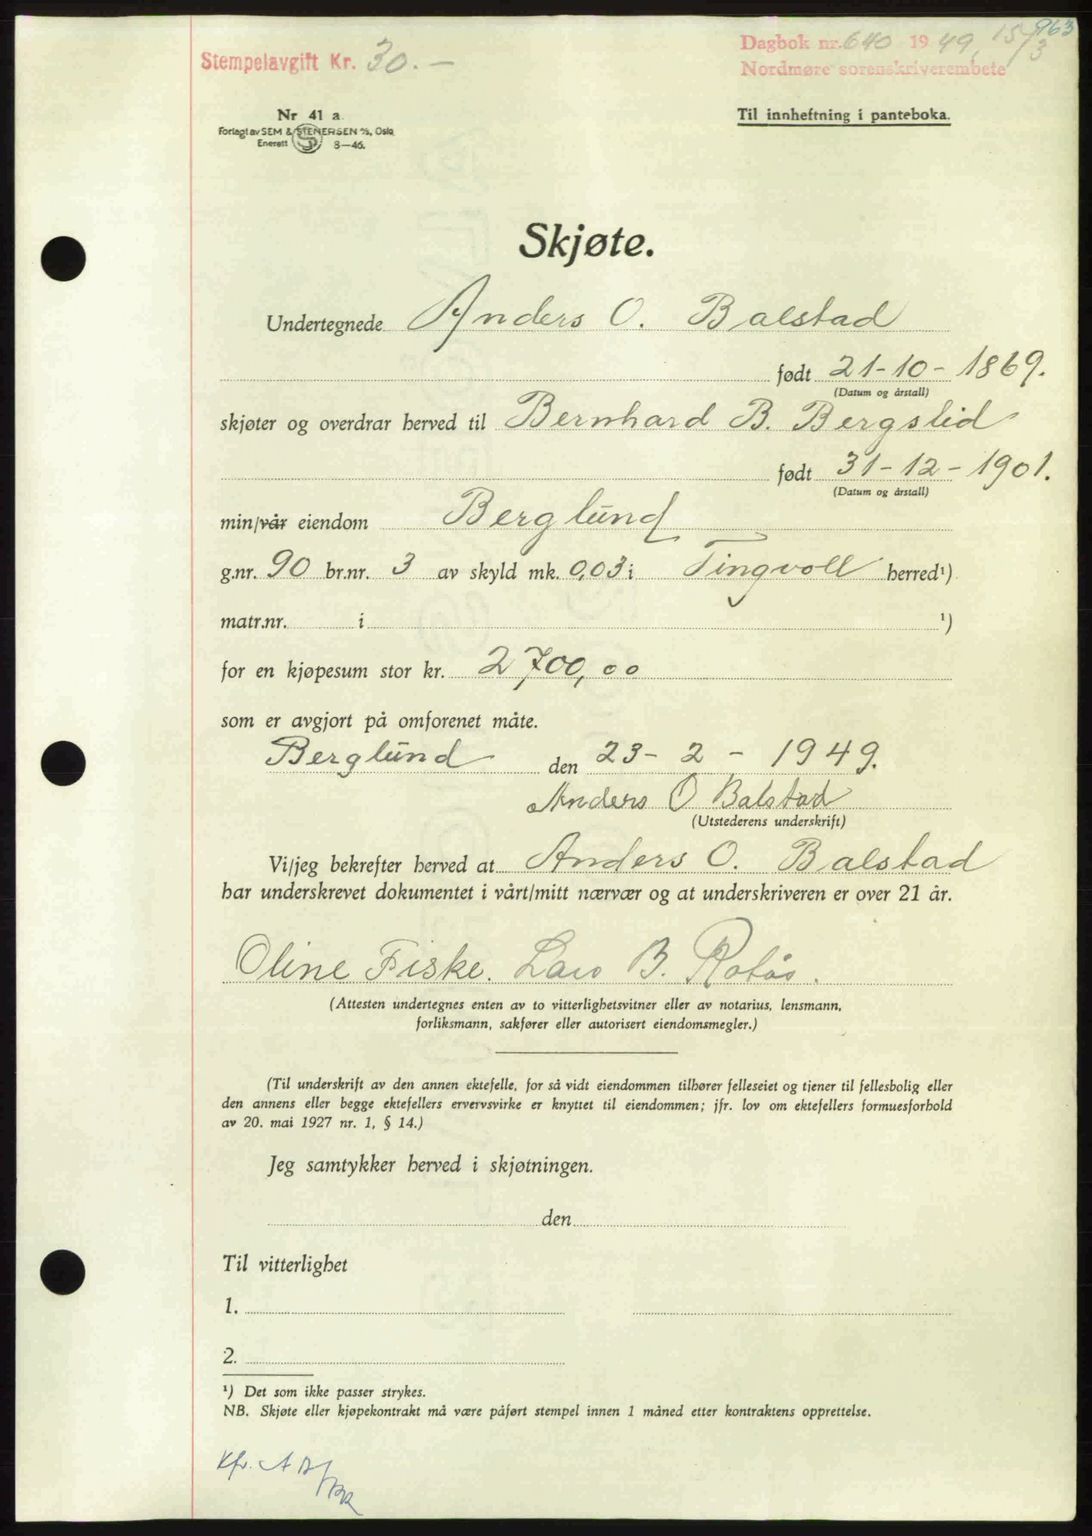 963
Dagbok nr. 640 1949, 15/3
Stempelavgift Kr. 30.—
Nordmøre sorenskriverembete
Nr 41 a
Forlagt av SEM & STENERSEN A/S, Oslo
Enerett 8-46.
Til innheftning i panteboka.
Skjøte.
Undertegnede Anders O. Balstad
født 21-10-1869.
(Datum og årstall)
skjøter og overdrar herved til Bernhard B. Bergslid
født 31-12-1901.
(Datum og årstall)
min/vår eiendom Berglund
g.nr. 90 br.nr. 3 av skyld mk. 0,03 i Tingvoll herred¹)
matr.nr. i ¹)
for en kjøpesum stor kr. 2700,00
som er avgjort på omforenet måte.
Berglund den 23-2-1949.
Anders O Balstad
(Utstederens underskrift)
Vi/jeg bekrefter herved at Anders O. Balstad
har underskrevet dokumentet i vårt/mitt nærvær og at underskriveren er over 21 år.
Oline Fiske. Lars B. Rotås.
(Attesten undertegnes enten av to vitterlighetsvitner eller av notarius, lensmann,
forliksmann, sakfører eller autorisert eiendomsmegler.)
(Til underskrift av den annen ektefelle, for så vidt eiendommen tilhører felleseiet og tjener til fellesbolig eller
den annens eller begge ektefellers ervervsvirke er knyttet til eiendommen; jfr. lov om ektefellers formuesforhold
av 20. mai 1927 nr. 1, § 14.)
Jeg samtykker herved i skjøtningen.
den
Til vitterlighet
1.
2.
¹) Det som ikke passer strykes.
NB. Skjøte eller kjøpekontrakt må være påført stempel innen 1 måned etter kontraktens opprettelse.